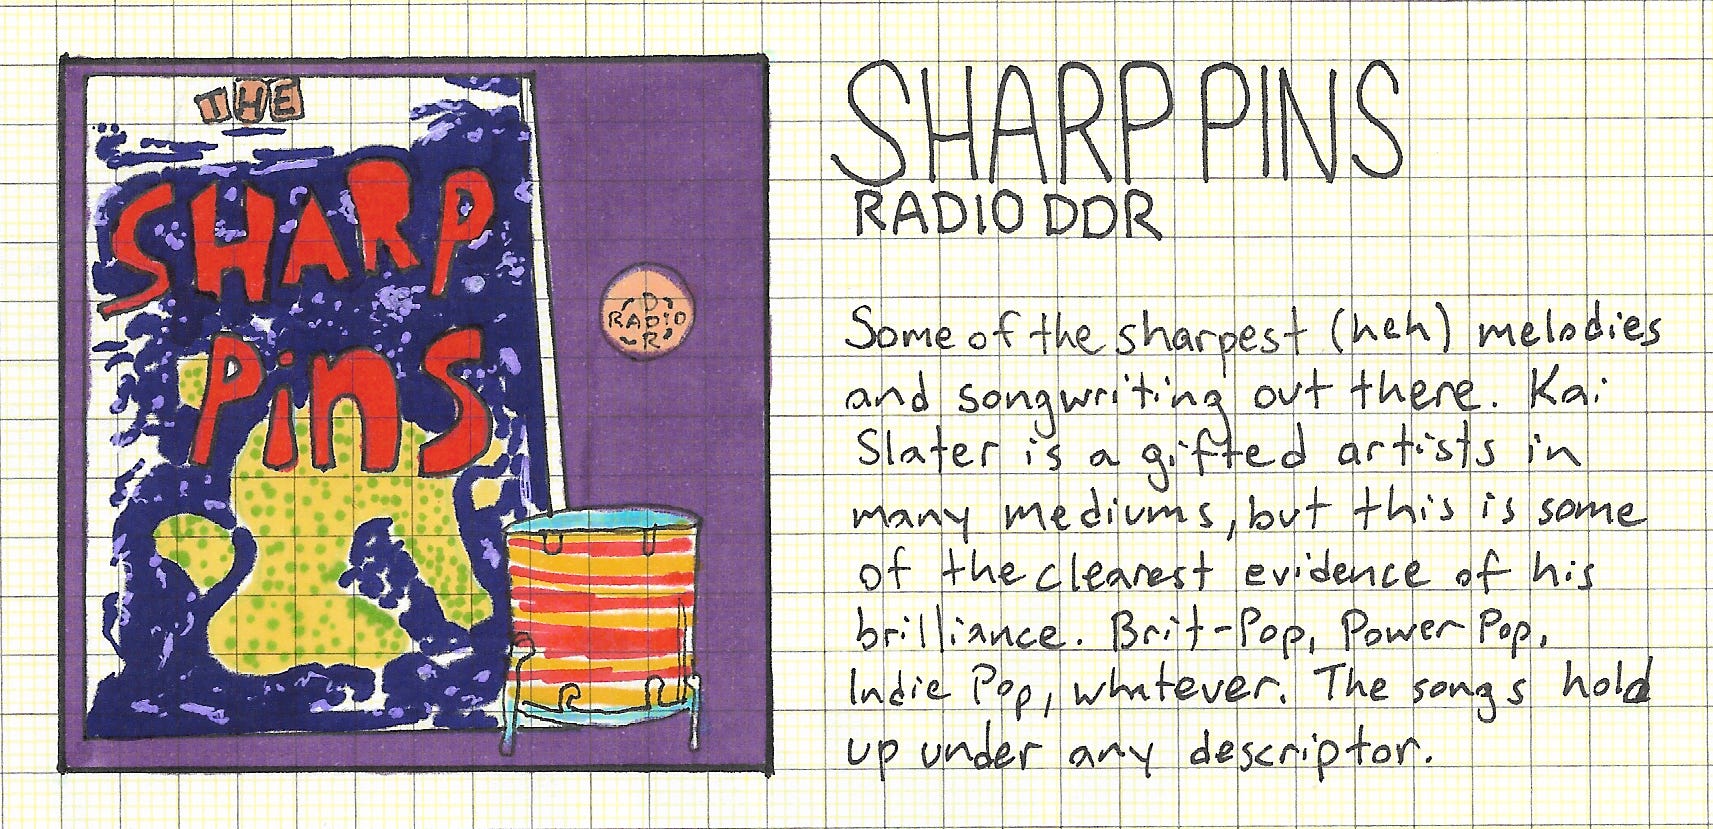 THE
SHARP
PINS
D
RADIO
R
SHARP PINS
RADIO DDR
Some of the sharpest (heh) melodies
and songwriting out there. Kai
Slater is a gifted artists in
many mediums, but this is some
of the clearest evidence of his
brilliance. Brit-Pop, Power Pop,
Indie Pop, whatever. The songs hold
up under any descriptor.